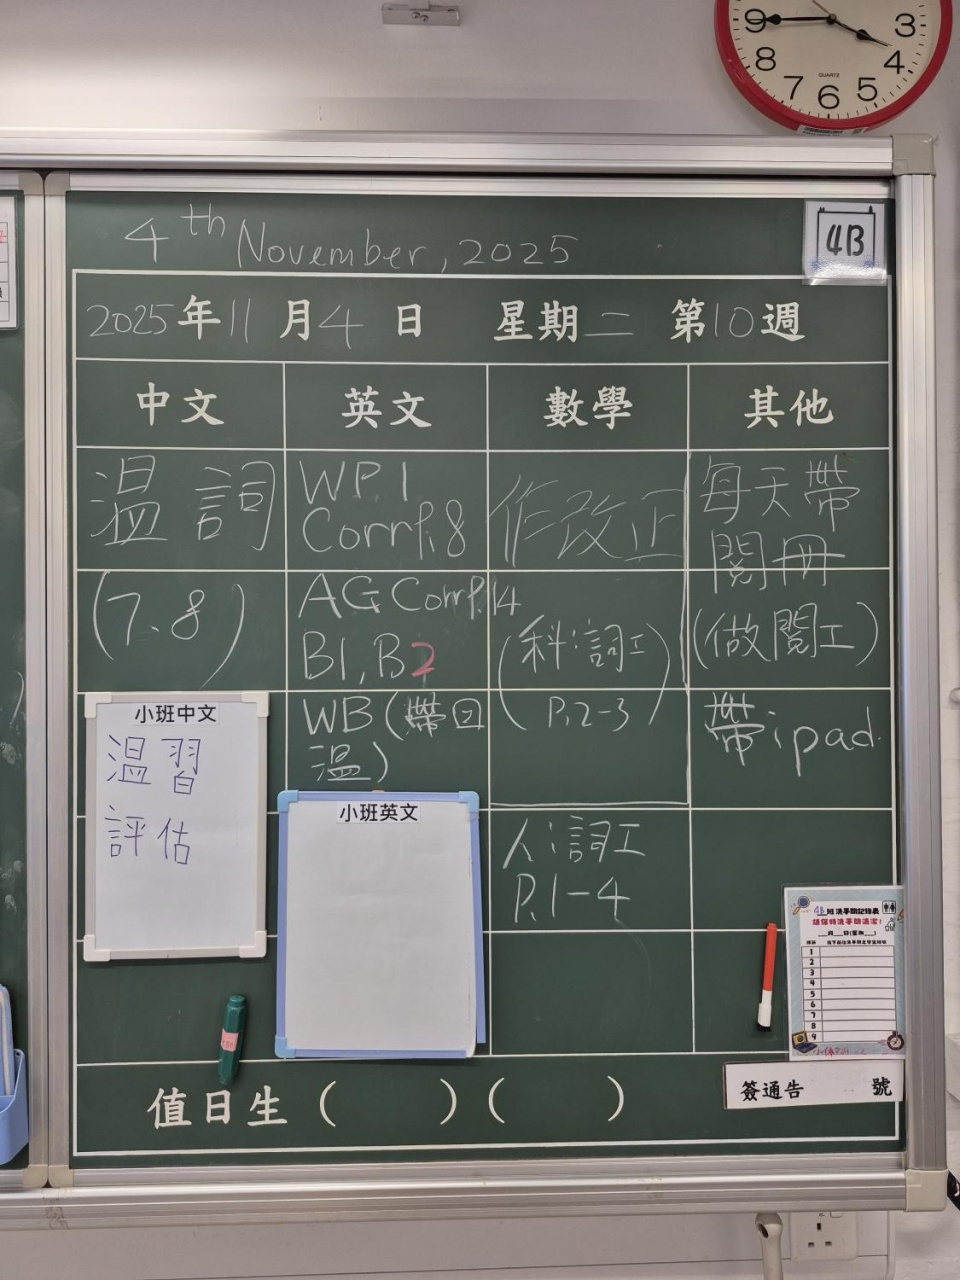 9 3
8 4
7 6 5
QUARTZ
4th November, 2025
4B
2025年11月4日 星期二 第10週
中文 英文 數學 其他
溫詞
(7.8)
WP.1
Corrp.8
AG Corrp.14
B1, B2
WB (帶回
溫)
作改正
(科:詞工
P.2-3)
人:詞工
P.1-4
每天帶
閱冊
(做閱工)
帶ipad
小班中文
溫習
評估
小班英文
4B班洗手間記錄表
請保持洗手間清潔!
1
2
3
4
5
6
7
8
9
簽通告 號
值日生( )( )